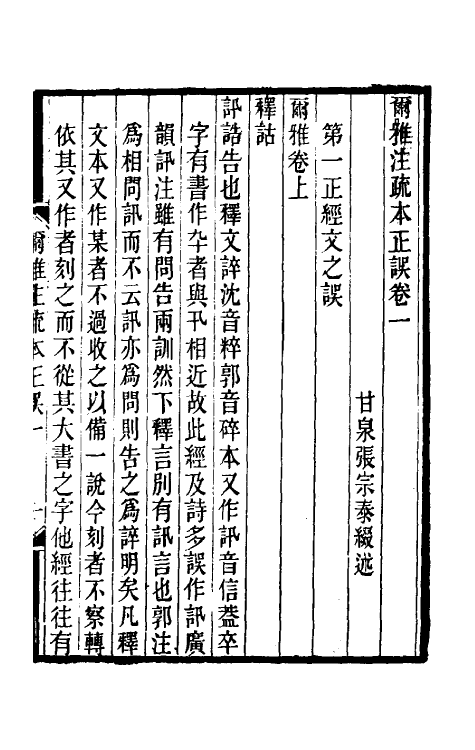 爾雅注疏本正誤卷一
甘泉張宗泰綴述
第一正經文之誤
爾雅卷上
釋詁
訊誥告也釋文誶沈音粹郭音碎本又作訊音信蓋卒
字有書作卆者與卂相近故此經及詩多誤作訊廣
韻訊注雖有問告兩訓然下釋言別有訊言也郭注
爲相問訊而不云訊亦爲問則告之爲誶明矣凡釋
文本又作某者不過收之以備一說今刻者不察轉
依其又作者刻之而不從其大書之字他經往往有
爾雅注疏本正誤一
一